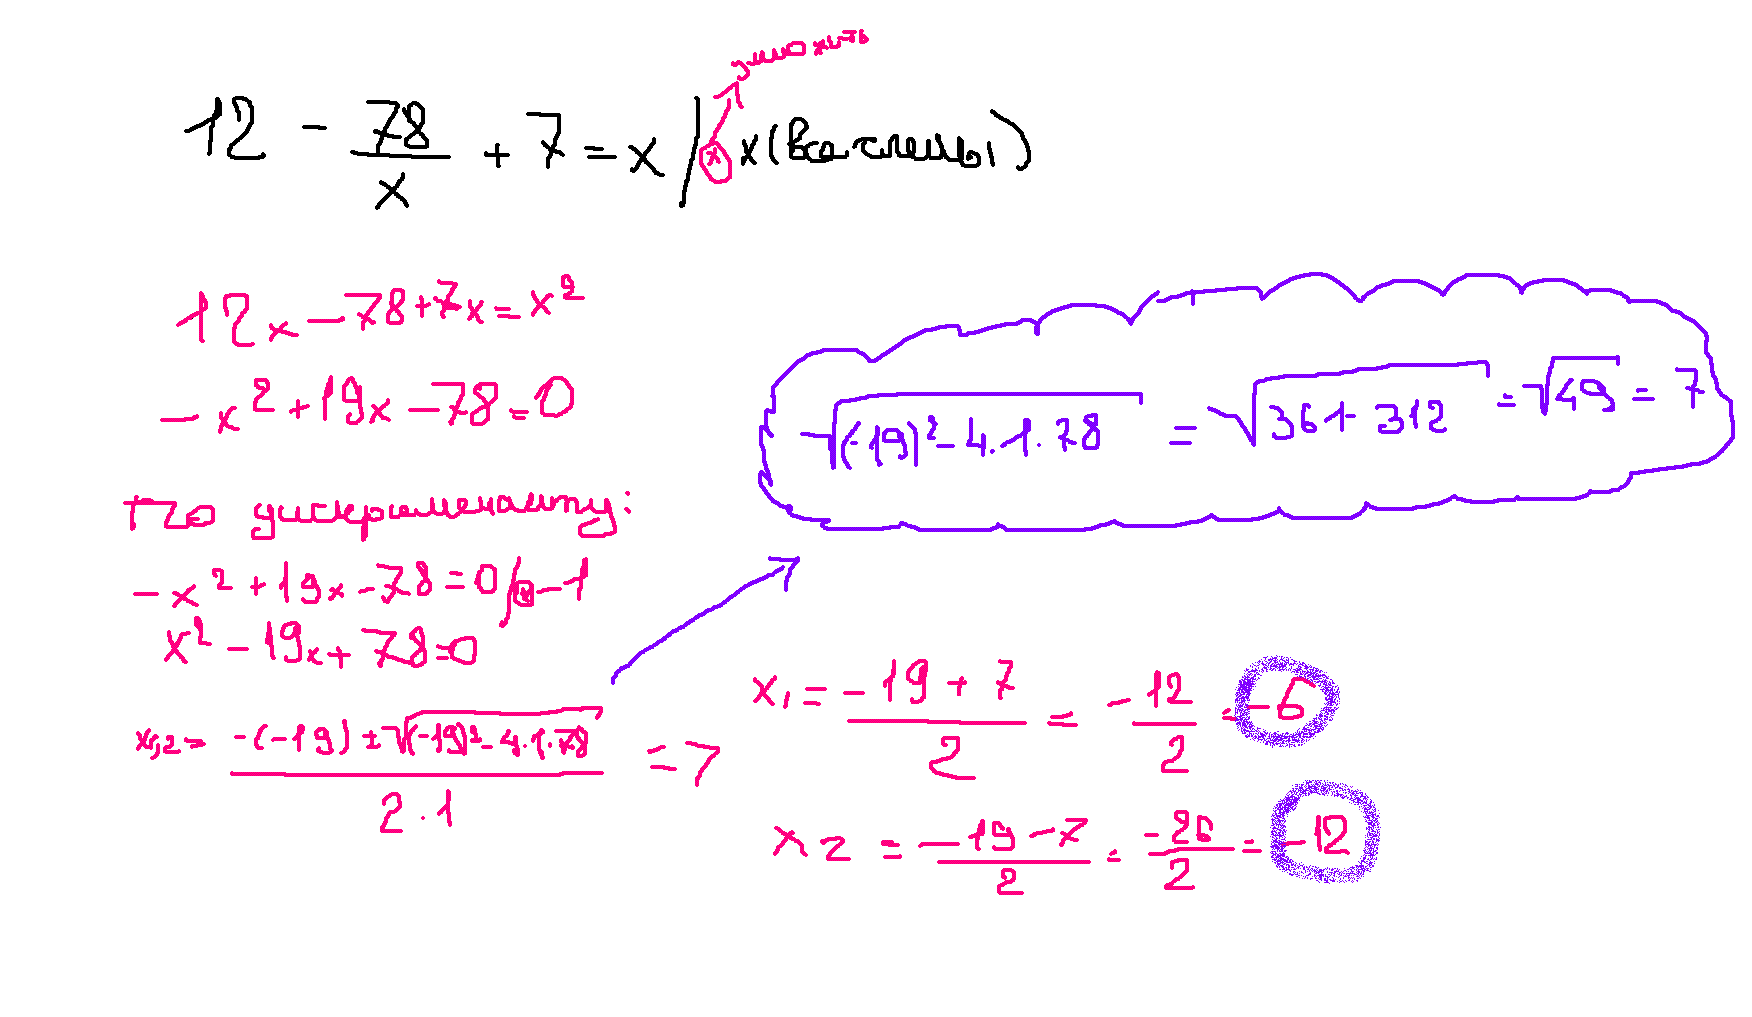 умножить
12 - 78/x + 7 = x / × x (все члены)
12x - 78 + 7x = x²
-x² + 19x - 78 = 0
По дискременанту:
-x² + 19x - 78 = 0 / × -1
x² - 19x + 78 = 0
x1,2 = (-(-19) ± √((-19)² - 4·1·78)) / (2·1) =>
√((-19)² - 4·1·78) = √(361 + 312) = √49 = 7
x1 = (-19 + 7)/2 = -12/2 = -6
x2 = (-19 - 7)/2 = -26/2 = -12